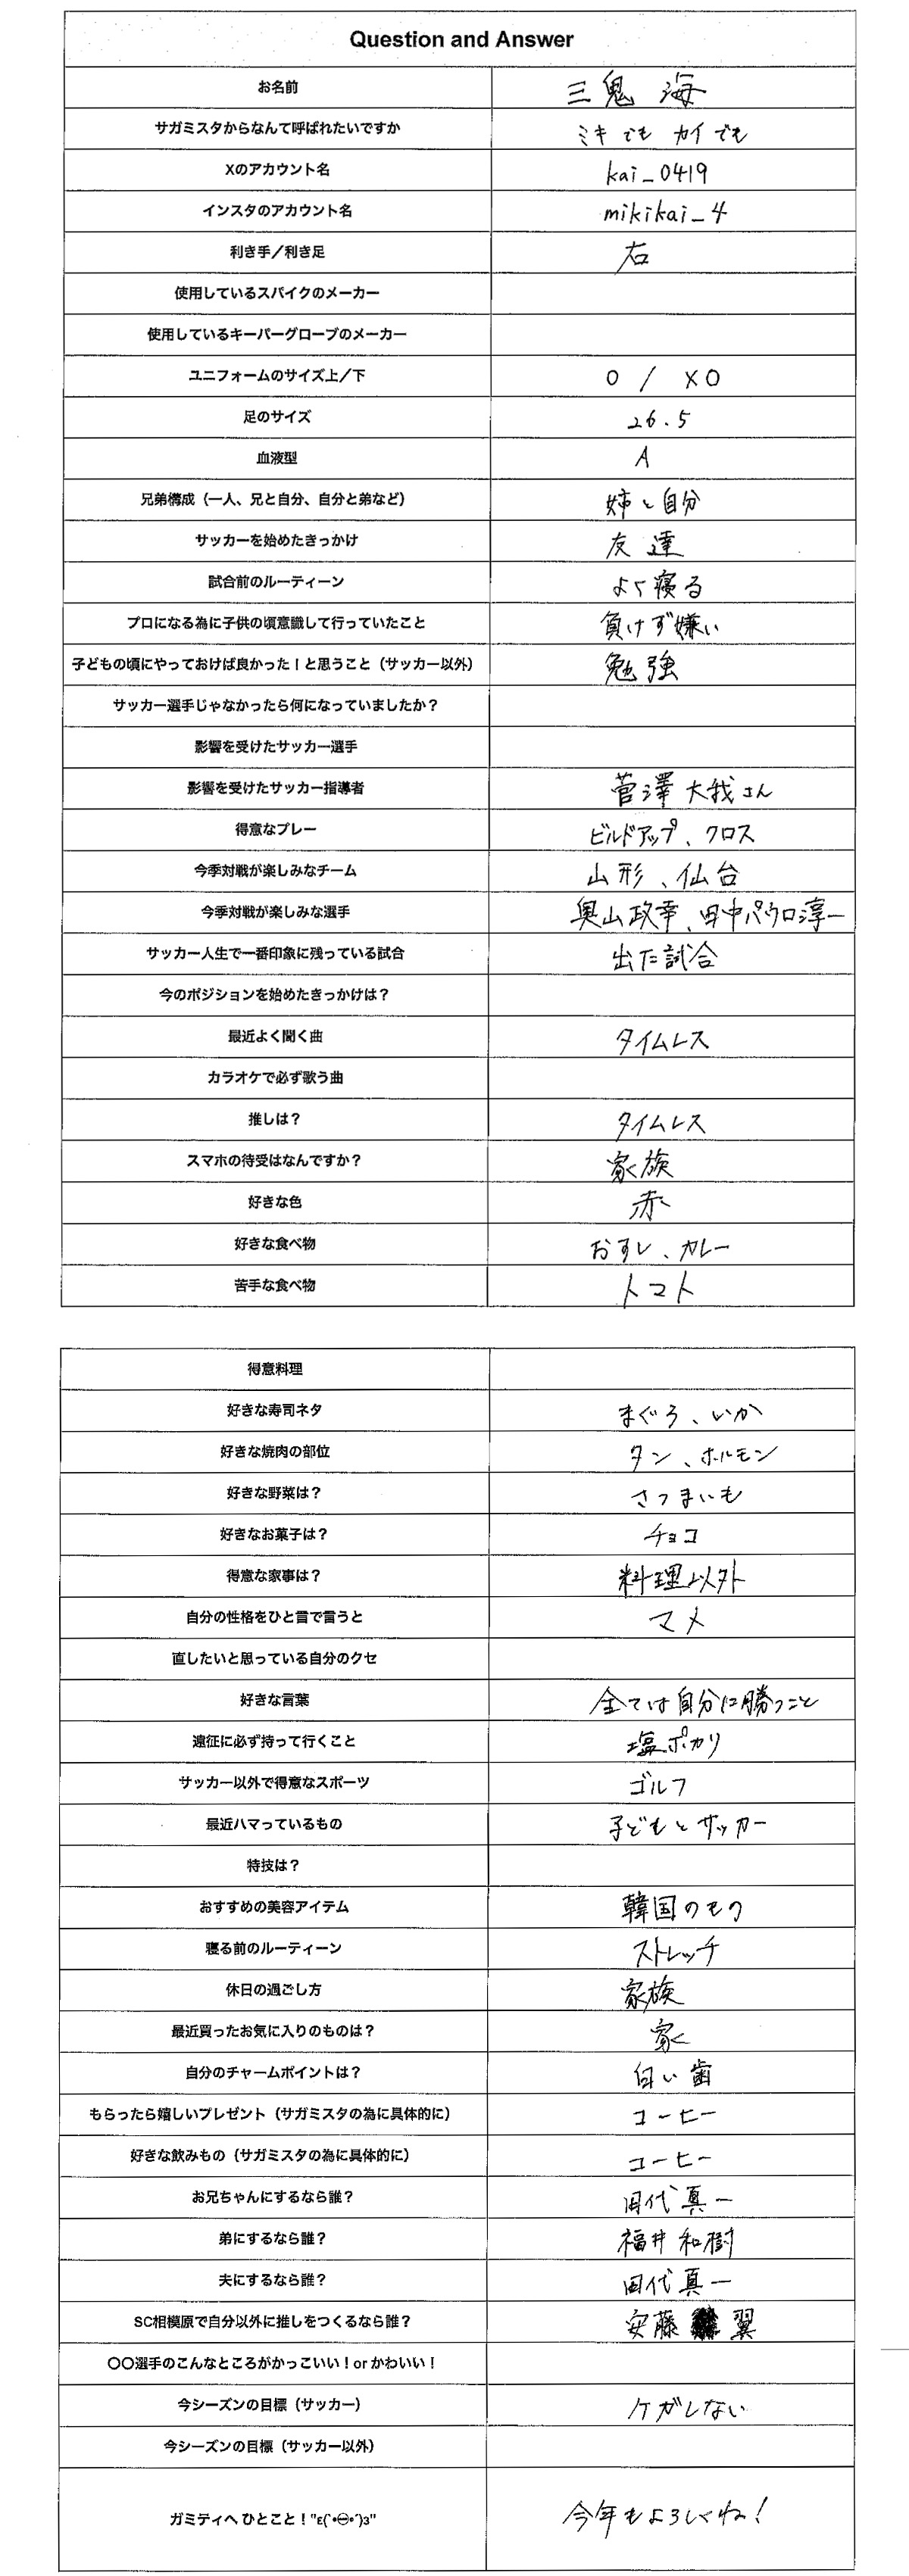 Question and Answer
お名前 三鬼 海
サガミスタからなんて呼ばれたいですか ミキでも カイでも
Xのアカウント名 kai_0419
インスタのアカウント名 mikikai_4
利き手／利き足 右
使用しているスパイクのメーカー
使用しているキーパーグローブのメーカー
ユニフォームのサイズ上／下 O / XO
足のサイズ 26.5
血液型 A
兄弟構成（一人、兄と自分、自分と弟など） 姉と自分
サッカーを始めたきっかけ 友達
試合前のルーティーン よく寝る
プロになる為に子供の頃意識して行っていたこと 負けず嫌い
子どもの頃にやっておけば良かった！と思うこと（サッカー以外） 勉強
サッカー選手じゃなかったら何になっていましたか？
影響を受けたサッカー選手
影響を受けたサッカー指導者 菅澤大我さん
得意なプレー ビルドアップ、クロス
今季対戦が楽しみなチーム 山形、仙台
今季対戦が楽しみな選手 奥山政幸、田中パウロ淳一
サッカー人生で一番印象に残っている試合 出た試合
今のポジションを始めたきっかけは？
最近よく聞く曲 タイムレス
カラオケで必ず歌う曲
推しは？ タイムレス
スマホの待受はなんですか？ 家族
好きな色 赤
好きな食べ物 おすし、カレー
苦手な食べ物 トマト
得意料理
好きな寿司ネタ まぐろ、いか
好きな焼肉の部位 タン、ホルモン
好きな野菜は？ さつまいも
好きなお菓子は？ チョコ
得意な家事は？ 料理以外
自分の性格をひと言で言うと マメ
直したいと思っている自分のクセ
好きな言葉 全ては自分に勝つこと
遠征に必ず持って行くこと 塩ポカリ
サッカー以外で得意なスポーツ ゴルフ
最近ハマっているもの 子どもとサッカー
特技は？
おすすめの美容アイテム 韓国のもの
寝る前のルーティーン ストレッチ
休日の過ごし方 家族
最近買ったお気に入りのものは？ 家
自分のチャームポイントは？ 白い歯
もらったら嬉しいプレゼント（サガミスタの為に具体的に） コーヒー
好きな飲みもの（サガミスタの為に具体的に） コーヒー
お兄ちゃんにするなら誰？ 田代真一
弟にするなら誰？ 福井和樹
夫にするなら誰？ 田代真一
SC相模原で自分以外に推しをつくるなら誰？ 安藤 翼
〇〇選手のこんなところがかっこいい！or かわいい！
今シーズンの目標（サッカー） ケガしない
今シーズンの目標（サッカー以外）
ガミティへ ひとこと！"ε(´•㉨•`)з" 今年もよろしくね！